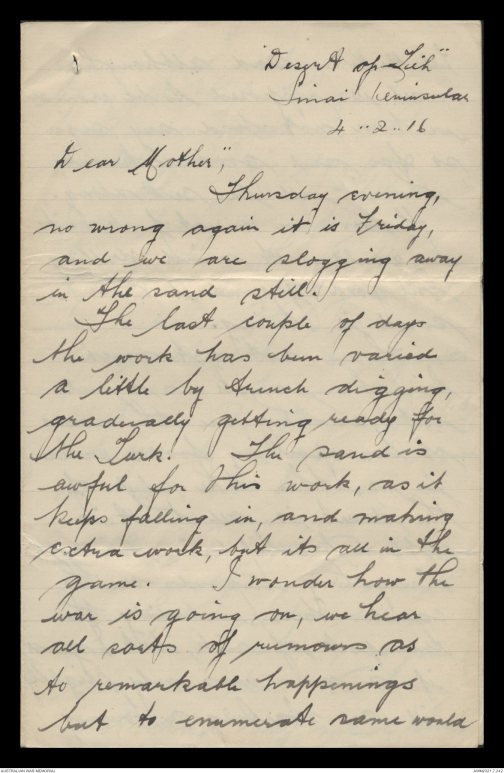 "Desert of Tieh"
Sinai Peninsular
4..2..16
Dear Mother",
Thursday evening,
no wrong again it is Friday,
and we are slogging away
in the sand still.
The last couple of days
the work has been varied
a little by trench digging,
gradually getting ready for
the Turk. The sand is
awful for this work, as it
keeps falling in, and making
extra work, but its all in the
game. I wonder how the
war is going on, we hear
all sorts of rumours as
to remarkable happenings
but to enumerate same would
AUSTRALIAN WAR MEMORIAL